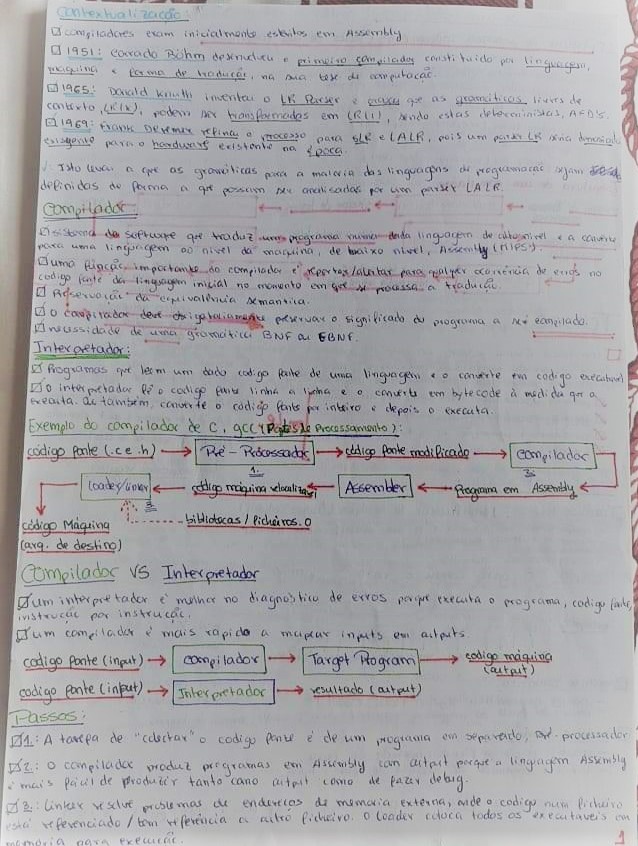 Contextualização:
compiladores eram inicialmente escritos em Assembly
1951: Corrado Böhm desenvolveu o primeiro compilador constituído por linguagem,
máquina e forma de tradução, na sua tese de computação.
1965: Donald Knuth inventou o LR Parser e que as gramáticas livres de
contexto, LR(k), podem ser transformadas em LR(1), sendo estas determinísticas, AFD's.
1969: Frank DeRemer refinou o processo para SLR e LALR, pois um parser LR seria demasiado
exigente para o hardware existente na época.
Isto levou a que as gramáticas para a maioria das linguagens de programação sejam
definidas de forma a que possam ser analisadas por um parser LALR.
Compilador
sistema de software que traduz um programa numa dada linguagem de alto nível e a converte
para uma linguagem ao nível da máquina, de baixo nível, Assembly (MIPS).
uma função importante do compilador é reportar/alertar para qualquer ocorrência de erros no
código fonte da linguagem inicial no momento em que se processa a tradução.
Preservação da equivalência semântica.
o compilador deve obrigatoriamente preservar o significado do programa a ser compilado.
necessidade de uma gramática BNF ou EBNF.
Interpretador:
Programas que leem um dado código fonte de uma linguagem e o converte em código executável
o interpretador lê o código fonte linha a linha e o converte em bytecode à medida que o
executa. Ou também, converte o código fonte por inteiro e depois o executa.
Exemplo do compilador de C, gcc de Processamento):
código fonte (.c e .h) → Pré-Processador → código fonte modificado → compilador
1. 2.
loader/linker ← código máquina relocalizável ← Assembler ← Programa em Assembly
3.
código Máquina bibliotecas / ficheiros.o
(arq. de destino)
Compilador VS Interpretador
um interpretador é melhor no diagnóstico de erros porque executa o programa, código fonte,
instrução por instrução.
um compilador é mais rápido a mapear inputs em outputs
código fonte (input) → compilador → Target Program → código máquina
(output)
código fonte (input) → Interpretador → resultado (output)
Passos:
1: A tarefa de "colectar" o código fonte é de um programa em separado, pré-processador
2: o compilador produz programas em Assembly com output porque a linguagem Assembly
é mais fácil de produzir tanto como output como de fazer debug.
3: Linker resolve problemas de endereços de memória externa, onde o código num ficheiro
está referenciado / tem referência a outro ficheiro. O loader coloca todos os executáveis em
memória para execução.
1